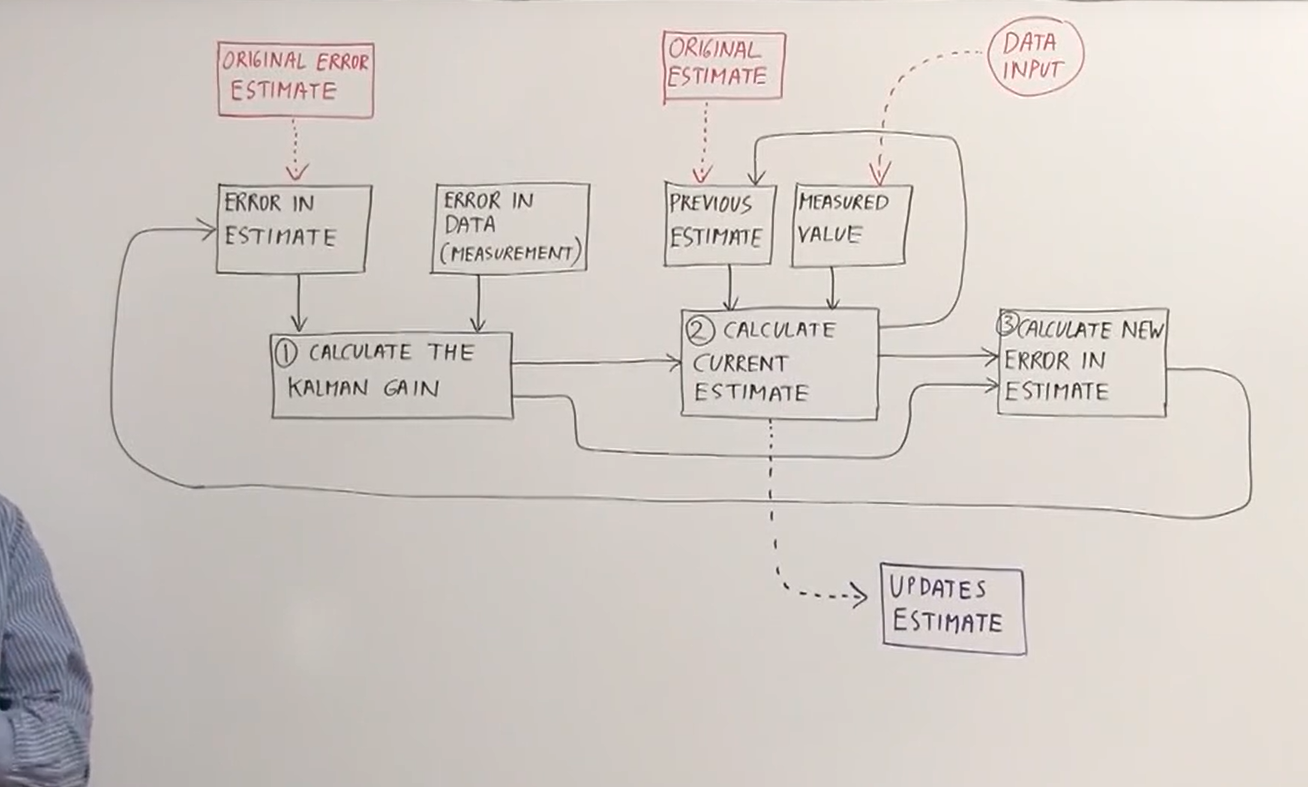 ORIGINAL ERROR
ESTIMATE
ORIGINAL
ESTIMATE
DATA
INPUT
ERROR IN
ESTIMATE
ERROR IN
DATA
(MEASUREMENT)
PREVIOUS
ESTIMATE
MEASURED
VALUE
① CALCULATE THE
KALMAN GAIN
② CALCULATE
CURRENT
ESTIMATE
③ CALCULATE NEW
ERROR IN
ESTIMATE
UPDATES
ESTIMATE